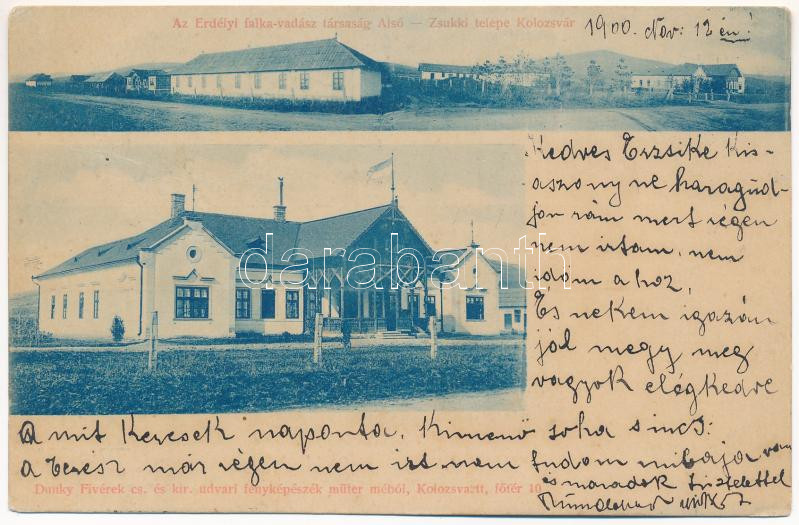 Az Erdélyi falka-vadász társaság Alsó — Zsukki telepe Kolozsvár
1900. Nov: 12 én!
Kedves Erzsike Kis-
aszony ne haragud-
jon rám mert régen
nem irtam, nem
időm a hoz,
És nekem igazán
jól megy meg
vagyok elégkedve
A mit Keresek naponta, Kimenő soha sincs:
a Terész már régen nem irt nem tudom mi baja van
és maradok tisztelettel
darabanth.com
Dunky Fivérek cs. és kir. udvari fényképészek műter méből, Kolozsvartt, főtér 10